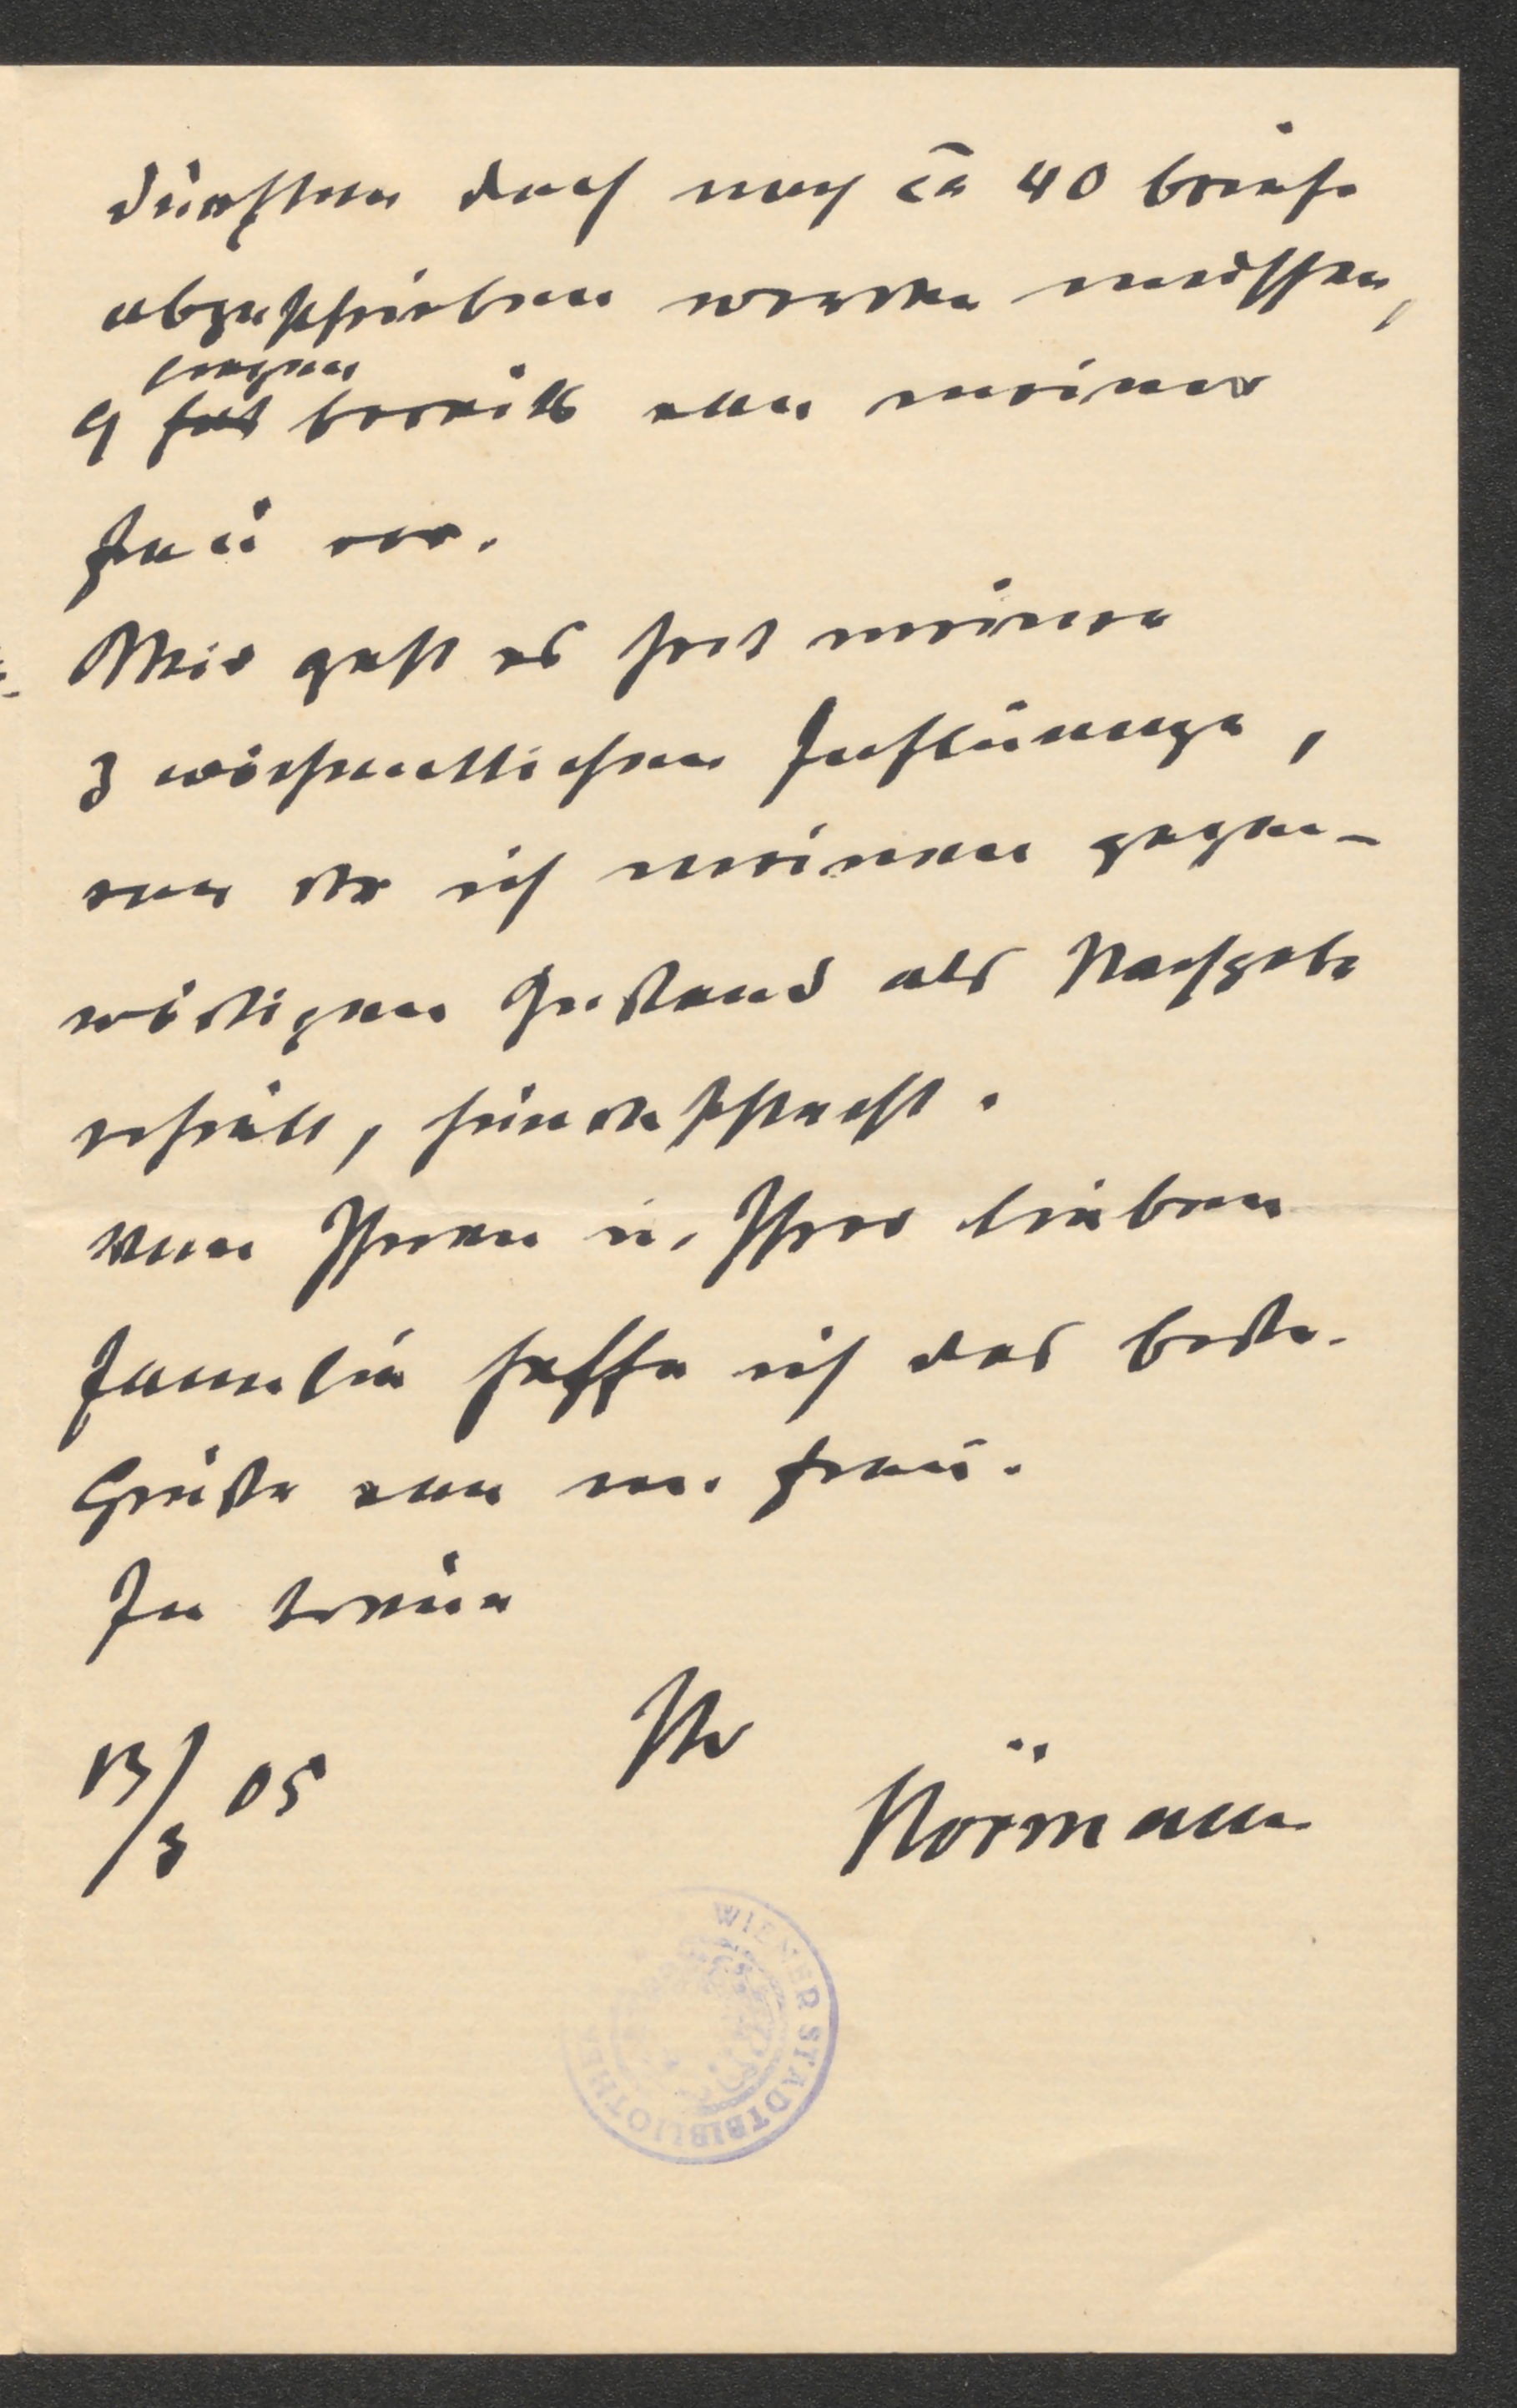 dürften doch noch ca 40 briefe
abzuschreiben werden müssen,
liegen
9 hat bereits von meiner
frau vor.
Mir geht es seit meiner
3 wöchentlichen Influenza,
von der ich meinen gegen-
wärtigen Zustand als Nachgabe
erhielt, hundeschlecht.
von Ihnen u. Ihrer lieben
Familie hoffe ich das beste.
Grüße von m. frau.
In treue
Ihr
13/3 05
Körmann
WIENER STADTBIBLIOTHEK